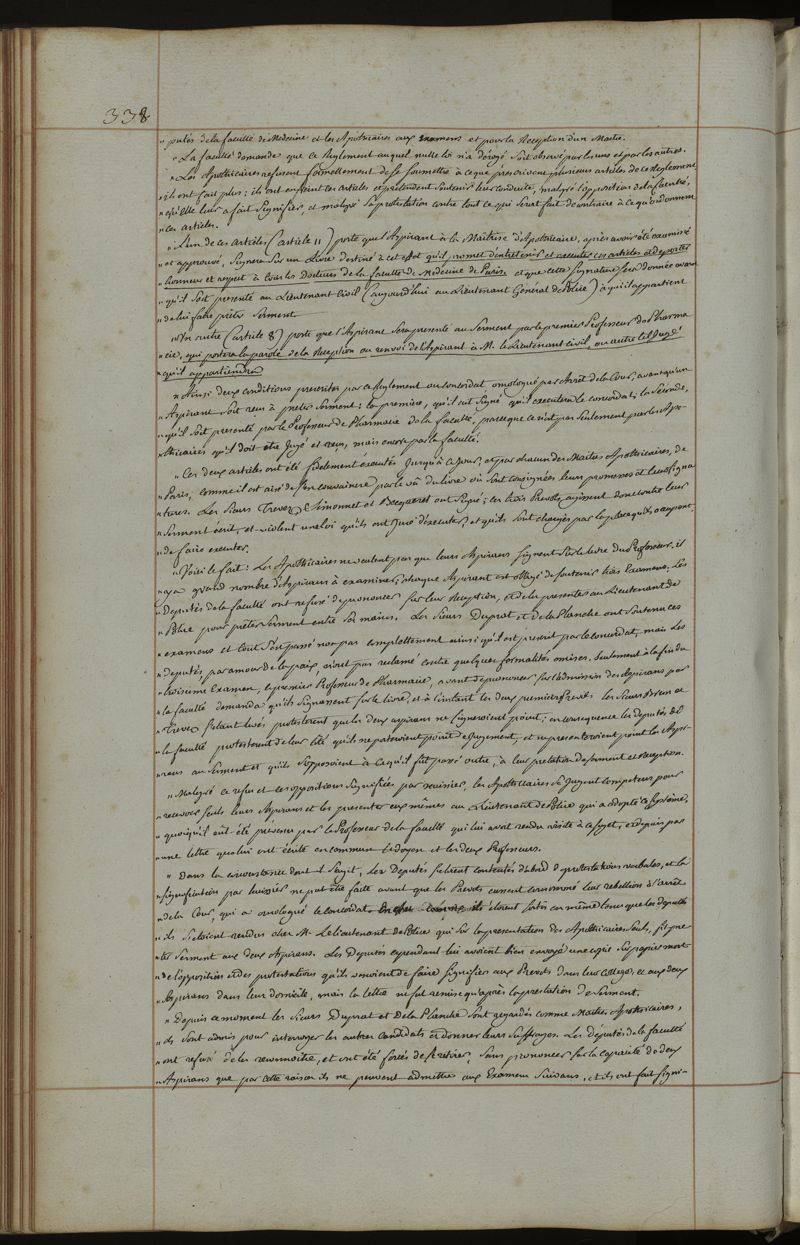 338
" putés de la faculté de Medecine et les Apothicaires aux Examens et pour la Reception d'un Maitre.
" La faculté demande que ce Reglement auquel nulle loi n'a dérogé soit observé par les uns et par les autres.
" Les Apothicaires refusent formellement de se soumettre à ce que prescrivent plusieurs articles de ce Reglement
" ils ont fait plus ; ils ont enfreint ces articles et prétendent soutenir leur conduite, malgré l'opposition de la faculté,
" qu'elle leur a fait signifier, et malgré sa protestation contre tout ce qui seroit fait de contraire à ce qu'ordonnent
" ces articles.
" L'un de ces articles (article 11) porte que l'Aspirant à la Maitrise d'Apothicaire, après avoir été examiné
" et approuvé, signera sur un Livre destiné à cet effet qu'il promet d'entretenir et executer ces articles et de porter
" honneur et respect à tous les Docteurs de la faculté de Medecine de Paris et que cette signature sera donnée avant
" qu'il soit presenté au Lieutenant Civil (aujourd'hui au Lieutenant Général de Police) à qui il appartient
" de lui faire prêter serment.
" Un autre (article 8) porte que l'Aspirant sera presenté au serment par le premier Professeur de Pharma
" cie, qui portera la parole de la Reception ou renvoi de l'Aspirant à M. le Lieutenant civil, ou autre tel Juge
" qu'il appartiendra
" Ainsi deux conditions prescrites par ce Reglement ou concordat omologué par Arrêt de la Cour, avant qu'un
" Aspirant soit reçu à prêter serment : la premiere, qu'il ait signé qu'il executera le concordat ; la seconde,
" qu'il soit presenté par le Professeur de Pharmacie de la faculté, parceque ce n'est pas seulement par les Apo-
" thicaires qu'il doit être jugé et reçu, mais encore par la faculté.
" Ces deux articles ont été fidelement executés jusqu'à ce jour, et par chacun des Maitres Apothicaires, de
" Paris, comme il est aisé de s'en convaincre par le vû du livre où sont consignées leurs promesses et leurs signa
" tures. Les Sieurs Trevez, Simonnet et Becqueret ont signé ; ces trois Prevots agissent donc contre leur
" serment écrit, et violent une loi qu'ils ont juré d'executer, et qu'ils sont chargés par la place qu'ils occupent
" de faire executer.
" Voici le fait : Les Apothicaires ne veulent pas que leurs Aspirans signent sur le livre du Professeur. il
" y a grand nombre d'Aspirans à examiner, chaque Aspirant est obligé de soutenir trois Examens. Les
" Députés de la faculté ont refusé de prononcer sur leur Reception, et de les presenter au Lieutenant de
" Police pour prêter serment entre ses mains. Les Sieurs Duprat et De la Planche ont soutenu ces
" examens et tout s'est passé non pas complettement ainsi qu'il est prescrit par le concordat, mais les
" députés, par amour de la paix, n'ont pas reclamé contre quelques formalités omises. Seulement à la fin du
" troisieme Examen, le premier Professeur de Pharmacie, avant de prononcer sur l'admission des Aspirans par
" la faculté demanda qu'ils signassent sur le livre, et à l'instant les deux premiers Prevots les Sieurs Brun et
" Trevez s'étant levés protesterent que les deux aspirans ne signeroient point ; en consequence les députés de
" la faculté protesterent de leur côté qu'ils ne porteroient point de jugement, et ne presenteroient point les Aspi-
" rans au serment et qu'ils s'opposoient à ce qu'il fût passé outre, à leur prestation de serment et reception.
" Malgré ce refus et ces oppositions signifiées par huissier, les Apothicaires se jugeant competens pour
" recevoir seuls leurs Aspirans et les presenter eux mêmes au Lieutenant de Police qui a adopté ce systême,
" quoiqu'il eût été prévenu par le Professeur de la faculté qui lui avoit rendu visite à ce sujet, et depuis par
" une lettre que lui ont écrite en commun le doyen et les deux Professeurs.
" Dans la circonstance dont il s'agit, les Députés s'étoient contentés d'abord de protestations verbales, et la
" signification par huissier ne put être faite avant que les Prevots eussent consommé leur rebellion à l'arrêt
" de la Cour, qui a omologué le concordat. ils étoient sortis en même tems que les députés
" ils s'étoient rendus chez M. Le Lieutenant de Police qui sur la presentation des Apothicaires seuls, fit prê-
" ter serment aux deux Aspirans. Les Députés cependant lui avoient bien envoyé une copie sur papier mort
" de l'opposition et des protestations qu'ils venoient de faire signifier aux Prevots dans leur college, et aux deux
" Aspirans dans leur domicile, mais la lettre ne fut remise qu'après la prestation de serment.
" Depuis ce moment les Sieurs Duprat et De la Planche sont regardés comme Maitres Apothicaires,
" ils sont admis pour interroger les autres Candidats et donner leurs suffrages. Les députés de la faculté
" ont refusé de les reconnoitre, et ont été forcés de se retirer, sans prononcer sur la capacité de deux
" Aspirans que par cette raison ils ne peuvent admettre aux Examens suivans, et ils ont fait signi-